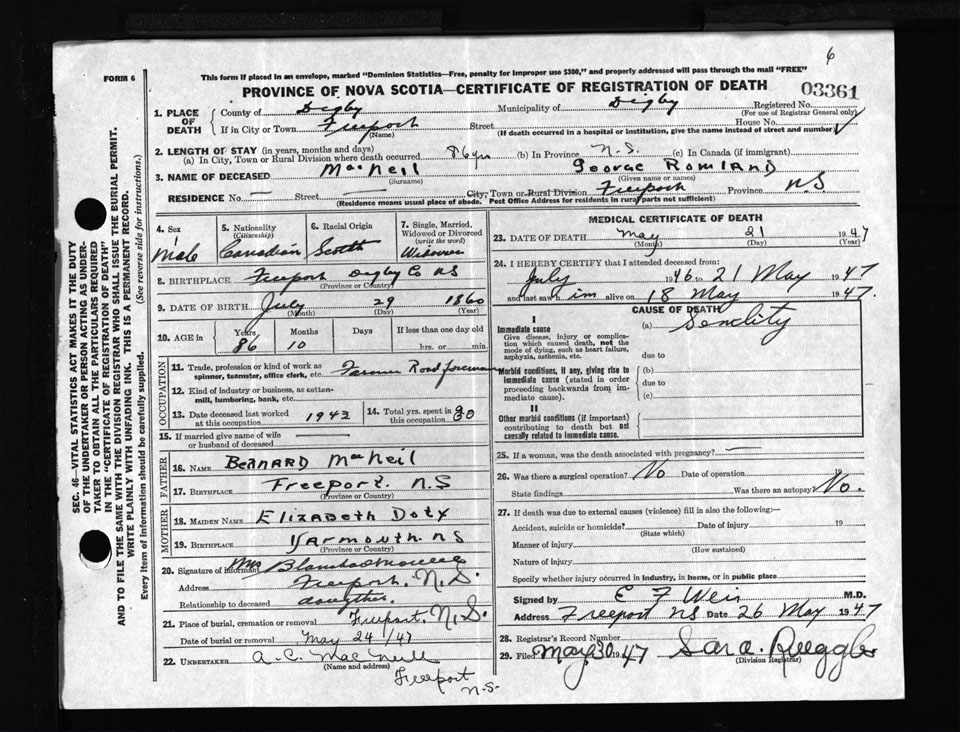 6
FORM 6
This form if placed in an envelope, marked "Dominion Statistics—Free, penalty for improper use $300," and properly addressed will pass through the mail "FREE"
PROVINCE OF NOVA SCOTIA—CERTIFICATE OF REGISTRATION OF DEATH
03361
1. PLACE OF DEATH
County of Digby Municipality of Digby Registered No.
(For use of Registrar General only)
If in City or Town Freeport Street House No.
(Name) (If death occurred in a hospital or institution, give the name instead of street and number)
2. LENGTH OF STAY (in years, months and days)
(a) In City, Town or Rural Division where death occurred 86 yrs (b) In Province N.S. (c) In Canada (if immigrant)
3. NAME OF DECEASED MacNeil George Romland
(Surname) (Given name or names)
RESIDENCE No. — Street City, Town or Rural Division Freeport Province NS
(Residence means usual place of abode. Post Office Address for residents in rural parts not sufficient)
4. Sex
Male
5. Nationality
(Citizenship)
Canadian
6. Racial Origin
Scotch
7. Single, Married, Widowed or Divorced
(write the word)
Widower
8. BIRTHPLACE Freeport Digby Co NS
(Province or Country)
9. DATE OF BIRTH July 29 1860
(Month) (Day) (Year)
10. AGE in Years Months Days If less than one day old
86 10 hrs. or min.
OCCUPATION
11. Trade, profession or kind of work as spinner, teamster, office clerk, etc. Farmer Road foreman
12. Kind of industry or business, as cotton-mill, lumbering, bank, etc.
13. Date deceased last worked at this occupation 1943
14. Total yrs. spent in this occupation
15. If married give name of wife or husband of deceased
FATHER
16. NAME Bernard MacNeil
17. BIRTHPLACE Freeport. N.S
(Province or Country)
MOTHER
18. MAIDEN NAME Elizabeth Doty
19. BIRTHPLACE Yarmouth. NS
(Province or Country)
20. Signature of informant Mrs
Address Freeport, N.S.
Relationship to deceased daughter.
21. Place of burial, cremation or removal Freeport, N.S.
Date of burial or removal May 24/47
22. UNDERTAKER A.C. MacNeill
(Name and address)
Freeport
N.S.
MEDICAL CERTIFICATE OF DEATH
23. DATE OF DEATH May 21 1947
(Month) (Day) (Year)
24. I HEREBY CERTIFY that I attended deceased from:
July 1946 to 21 May 1947
and last saw him alive on 18 May 1947.
CAUSE OF DEATH
I
Immediate cause
Give disease, injury or complication which caused death, not the mode of dying, such as heart failure, asphyxia, asthenia, etc.
(a) Senility
due to
Morbid conditions, if any, giving rise to immediate cause (stated in order proceeding backwards from immediate cause).
(b)
due to
(c)
II
Other morbid conditions (if important) contributing to death but not causally related to immediate cause.
25. If a woman, was the death associated with pregnancy? —
26. Was there a surgical operation? No Date of operation
State findings Was there an autopsy? No.
27. If death was due to external causes (violence) fill in also the following:—
Accident, suicide or homicide? Date of injury 19
(State which)
Manner of injury
(How sustained)
Nature of injury
Specify whether injury occurred in industry, in home, or in public place
Signed by E F Weir M.D.
Address Freeport NS Date 26 May 1947
28. Registrar's Record Number
29. Filed May 30 1947 Sara. Ruggles
(Division Registrar)
SEC. 46—VITAL STATISTICS ACT MAKES IT THE DUTY
OF THE UNDERTAKER OR PERSON ACTING AS UNDER-
TAKER TO OBTAIN ALL THE PARTICULARS REQUIRED
IN THE "CERTIFICATE OF REGISTRATION OF DEATH"
AND TO FILE THE SAME WITH THE DIVISION REGISTRAR WHO SHALL ISSUE THE BURIAL PERMIT.
WRITE PLAINLY WITH UNFADING INK. THIS IS A PERMANENT RECORD.
Every item of information should be carefully supplied. (See reverse side for instructions.)